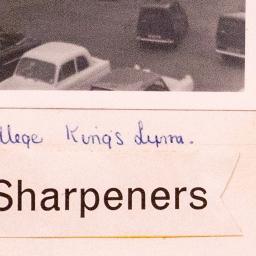 llege King's Lynn.
Sharpeners